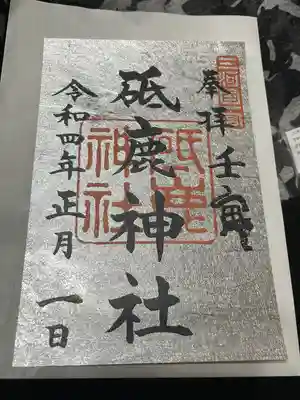 三河国一宮
奉拝 壬寅
砥鹿神社
砥鹿神社
令和四年正月一日